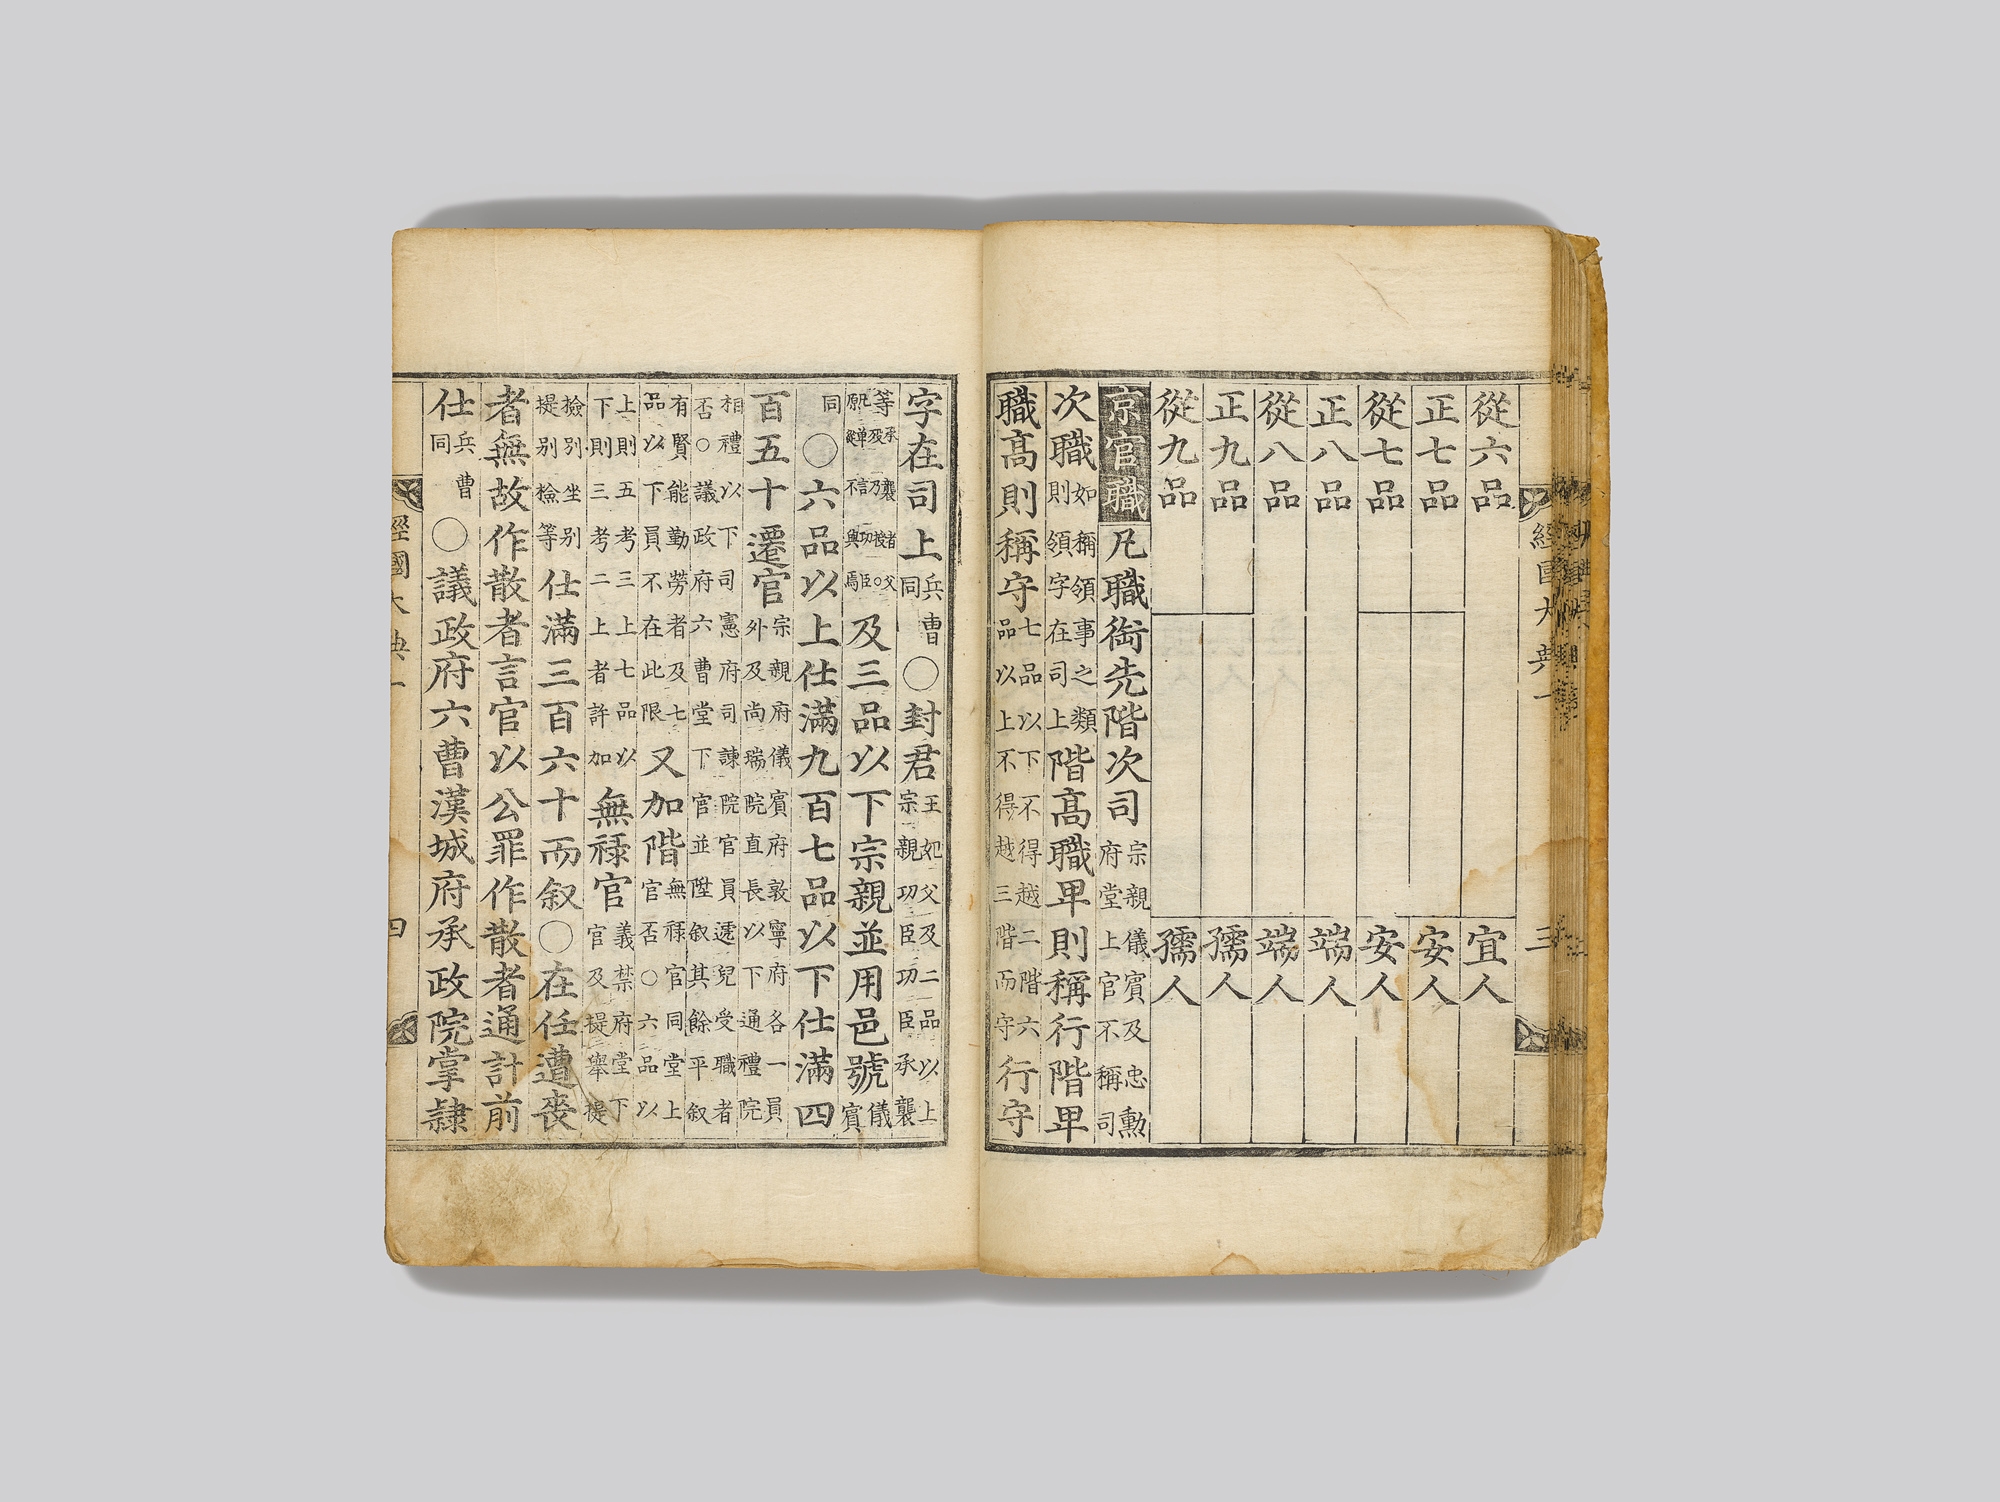 經國大典一 三
從六品 宜人
正七品 安人
從七品 安人
正八品 端人
從八品 端人
正九品 孺人
從九品 孺人
京官職 凡職銜先階次司 宗親儀賓及忠勳府堂上官不稱司
次職 如稱領事之類則領字在司上 階高職卑則稱行階卑
職高則稱守 七品以下不得越二階六品以上不得越三階而守 行守
字在司上 兵曹同 ○封君 王妃父及二品以上宗親功臣功臣承襲
等 及三品以下宗親並用邑號 儀賓
同 ○六品以上仕滿九百七品以下仕滿四
百五十遷官 宗親府儀賓府敦寧府各一員外及尚瑞院直長以下通禮院
相禮以下司憲府司諫院官員遞兒受職者否○議政府六曹堂下官並陞敘其餘平敘
有賢能勤勞者及七品以下員不在此限 又加階 無祿官同堂上官否○六品以
上則五考三上七品以下則三考二上者許加 無祿官 義禁府堂下官及提舉提
檢別坐別提別檢等 仕滿三百六十而叙○在任遭喪
者無故作散者言官以公罪作散者通計前
仕 兵曹同 ○議政府六曹漢城府承政院掌隸
經國大典一 四